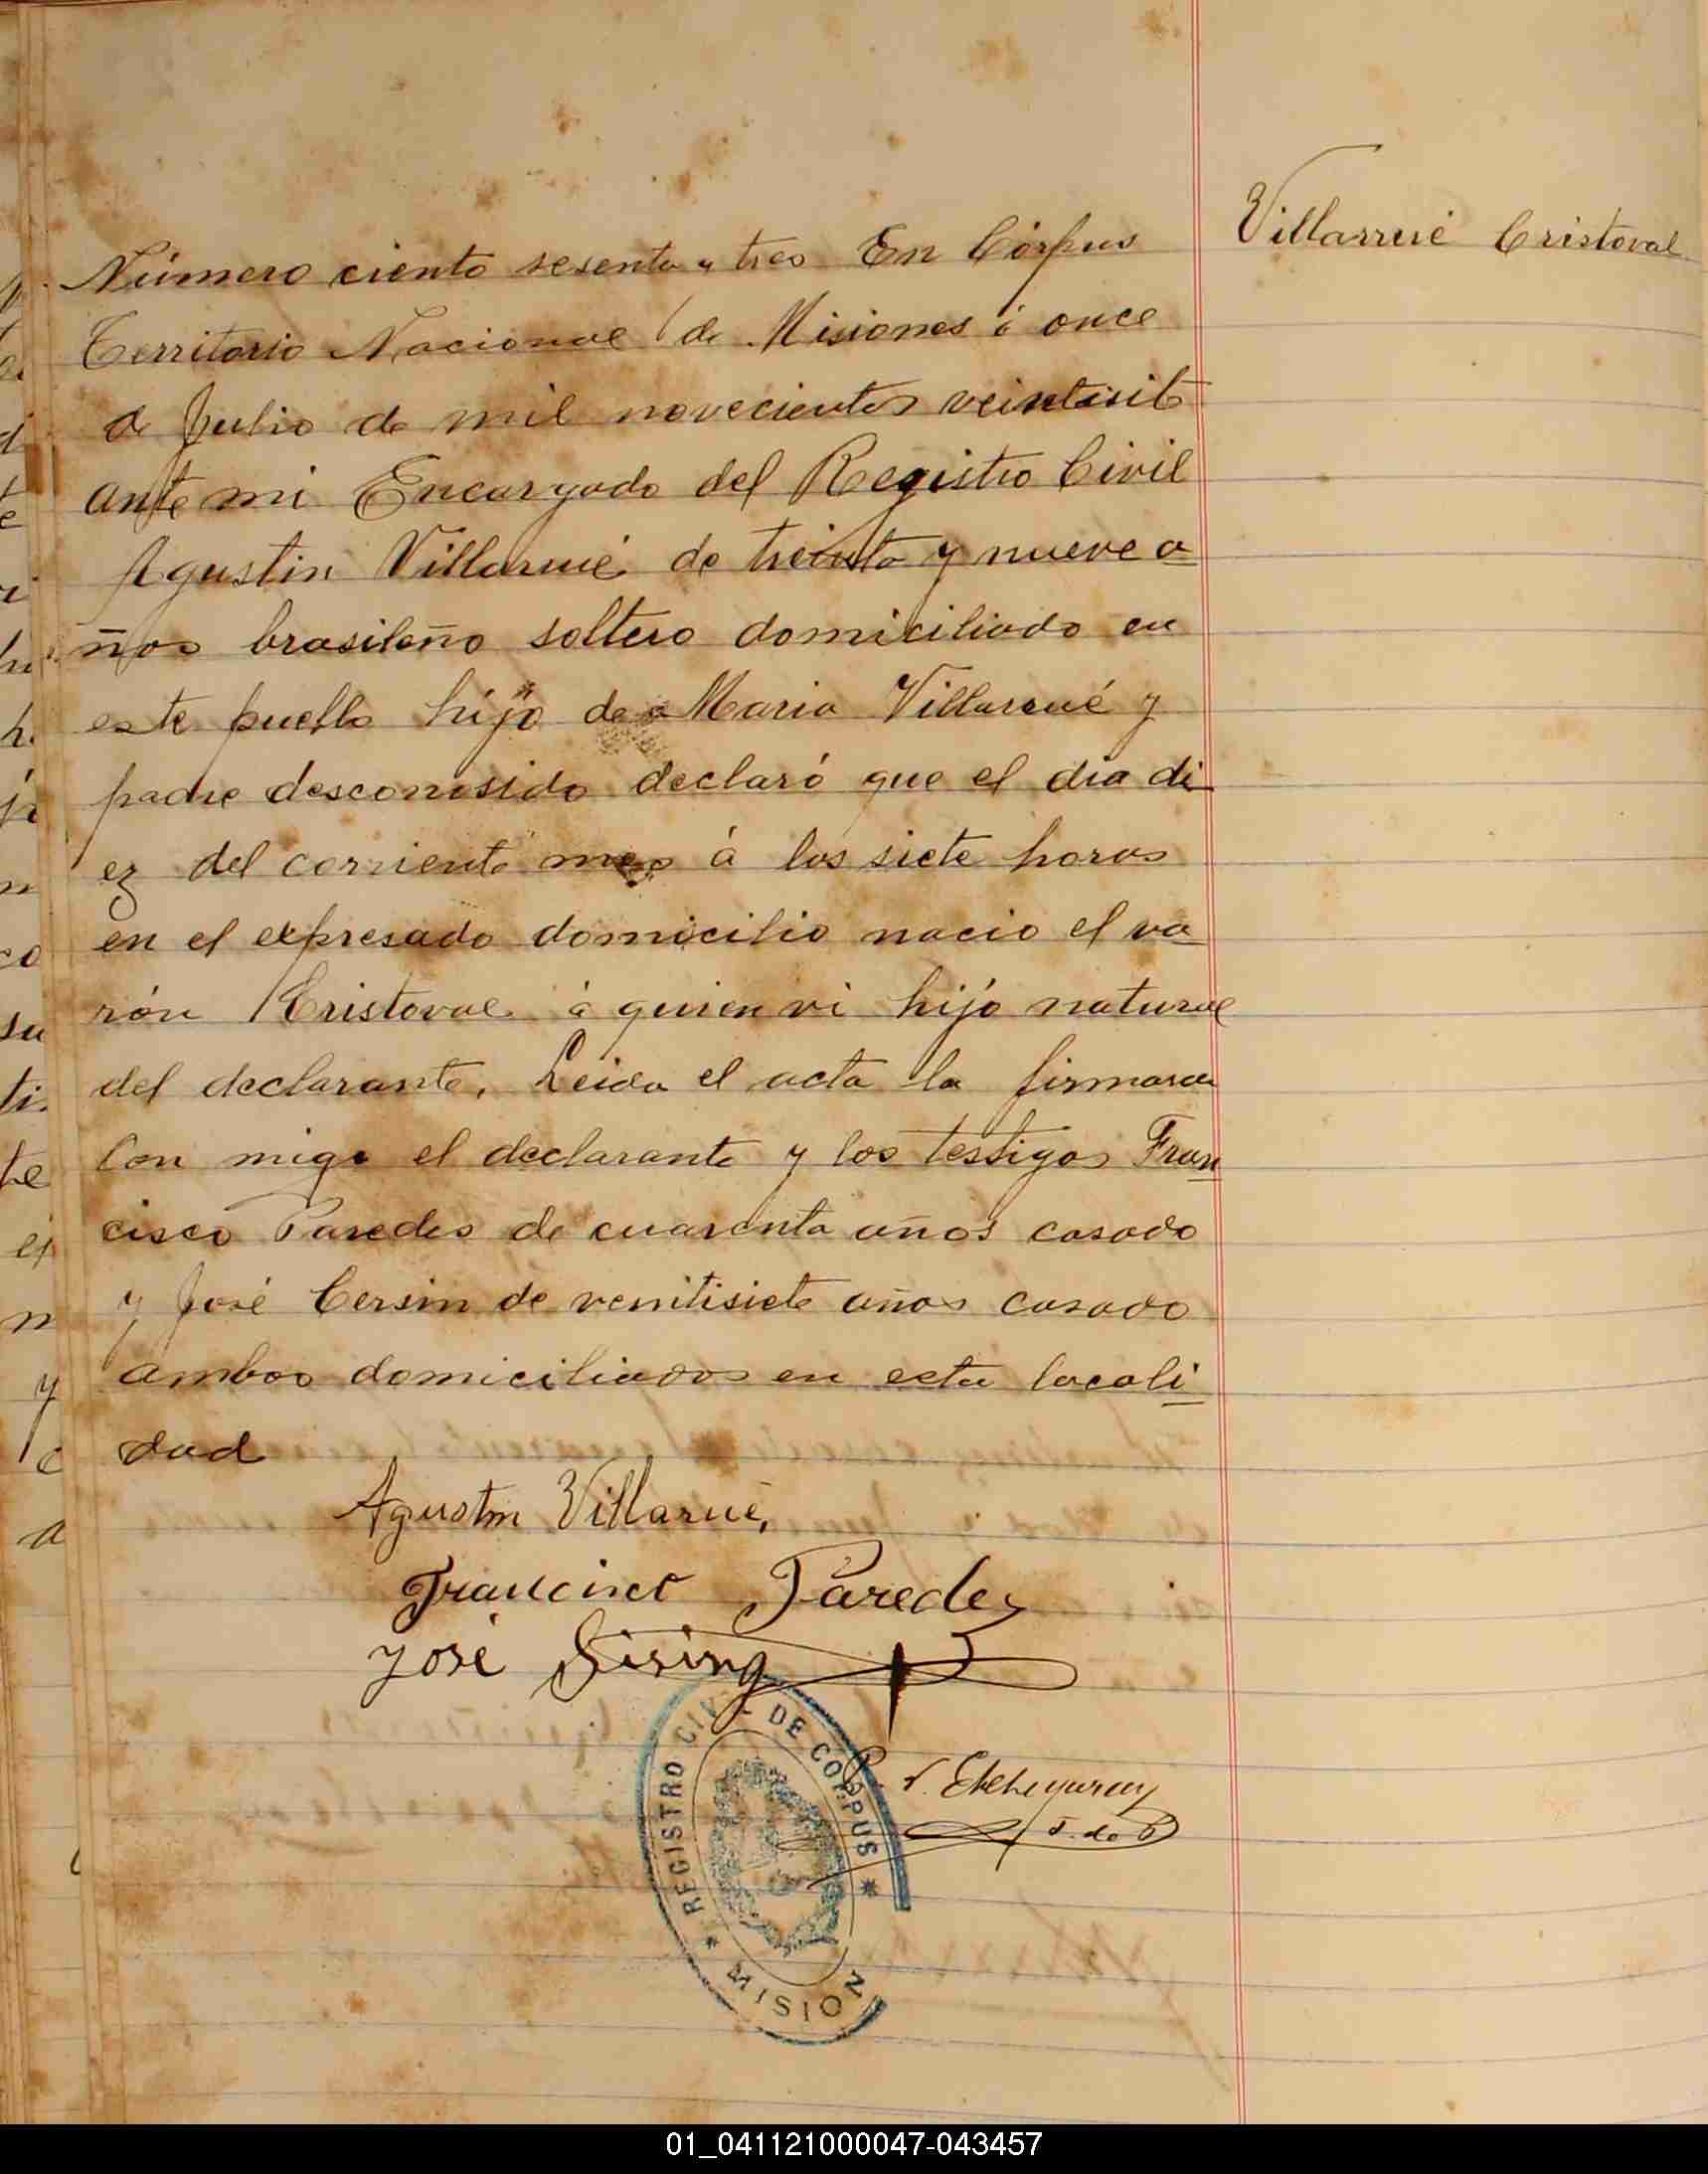 Villarrué Cristoval
Número ciento sesenta y tres En Córpus
Territorio Nacional de Misiones á once
de Julio de mil novecientos veintisite
ante mi Encargado del Registro Civil
Agustin Villarué de treinta y nueve a
ños brasileño soltero domiciliado en
este pueblo hijo de Maria Villarué y
padre desconosido declaró que el dia di
ez del corriente mes á las siete horas
en el expresado domicilio nacio el va
rón Cristoval á quien vi hijo natural
del declarante. Leida el acta la firmaron
Con migo el declarante y los testigos Fran
cisco Paredes de cuarenta años casado
y José Cersin de veintisiete años casado
ambos domiciliados en esta locali
dad
Agustin Villarué,
Francisco Paredes
José Sising
P. V. Etchegaray
J. de P
REGISTRO CIVIL DE CORPUS
MISION
01_041121000047-043457